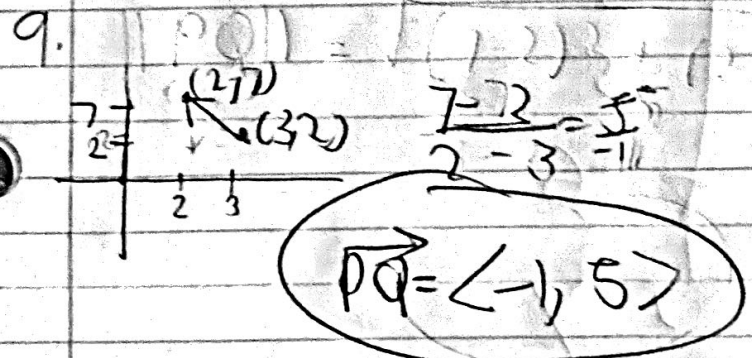 9.
(2,7)
7
2
(3,2)
2 3
7-2
2 - 3 = 5
-1
PQ = <-1, 5>